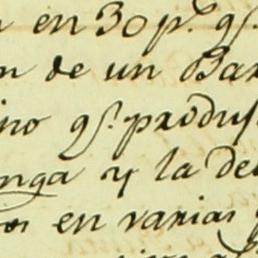 en 30 p.^s q.^e
n de un Bar
ino q.^e produ
nga y la de
en varias